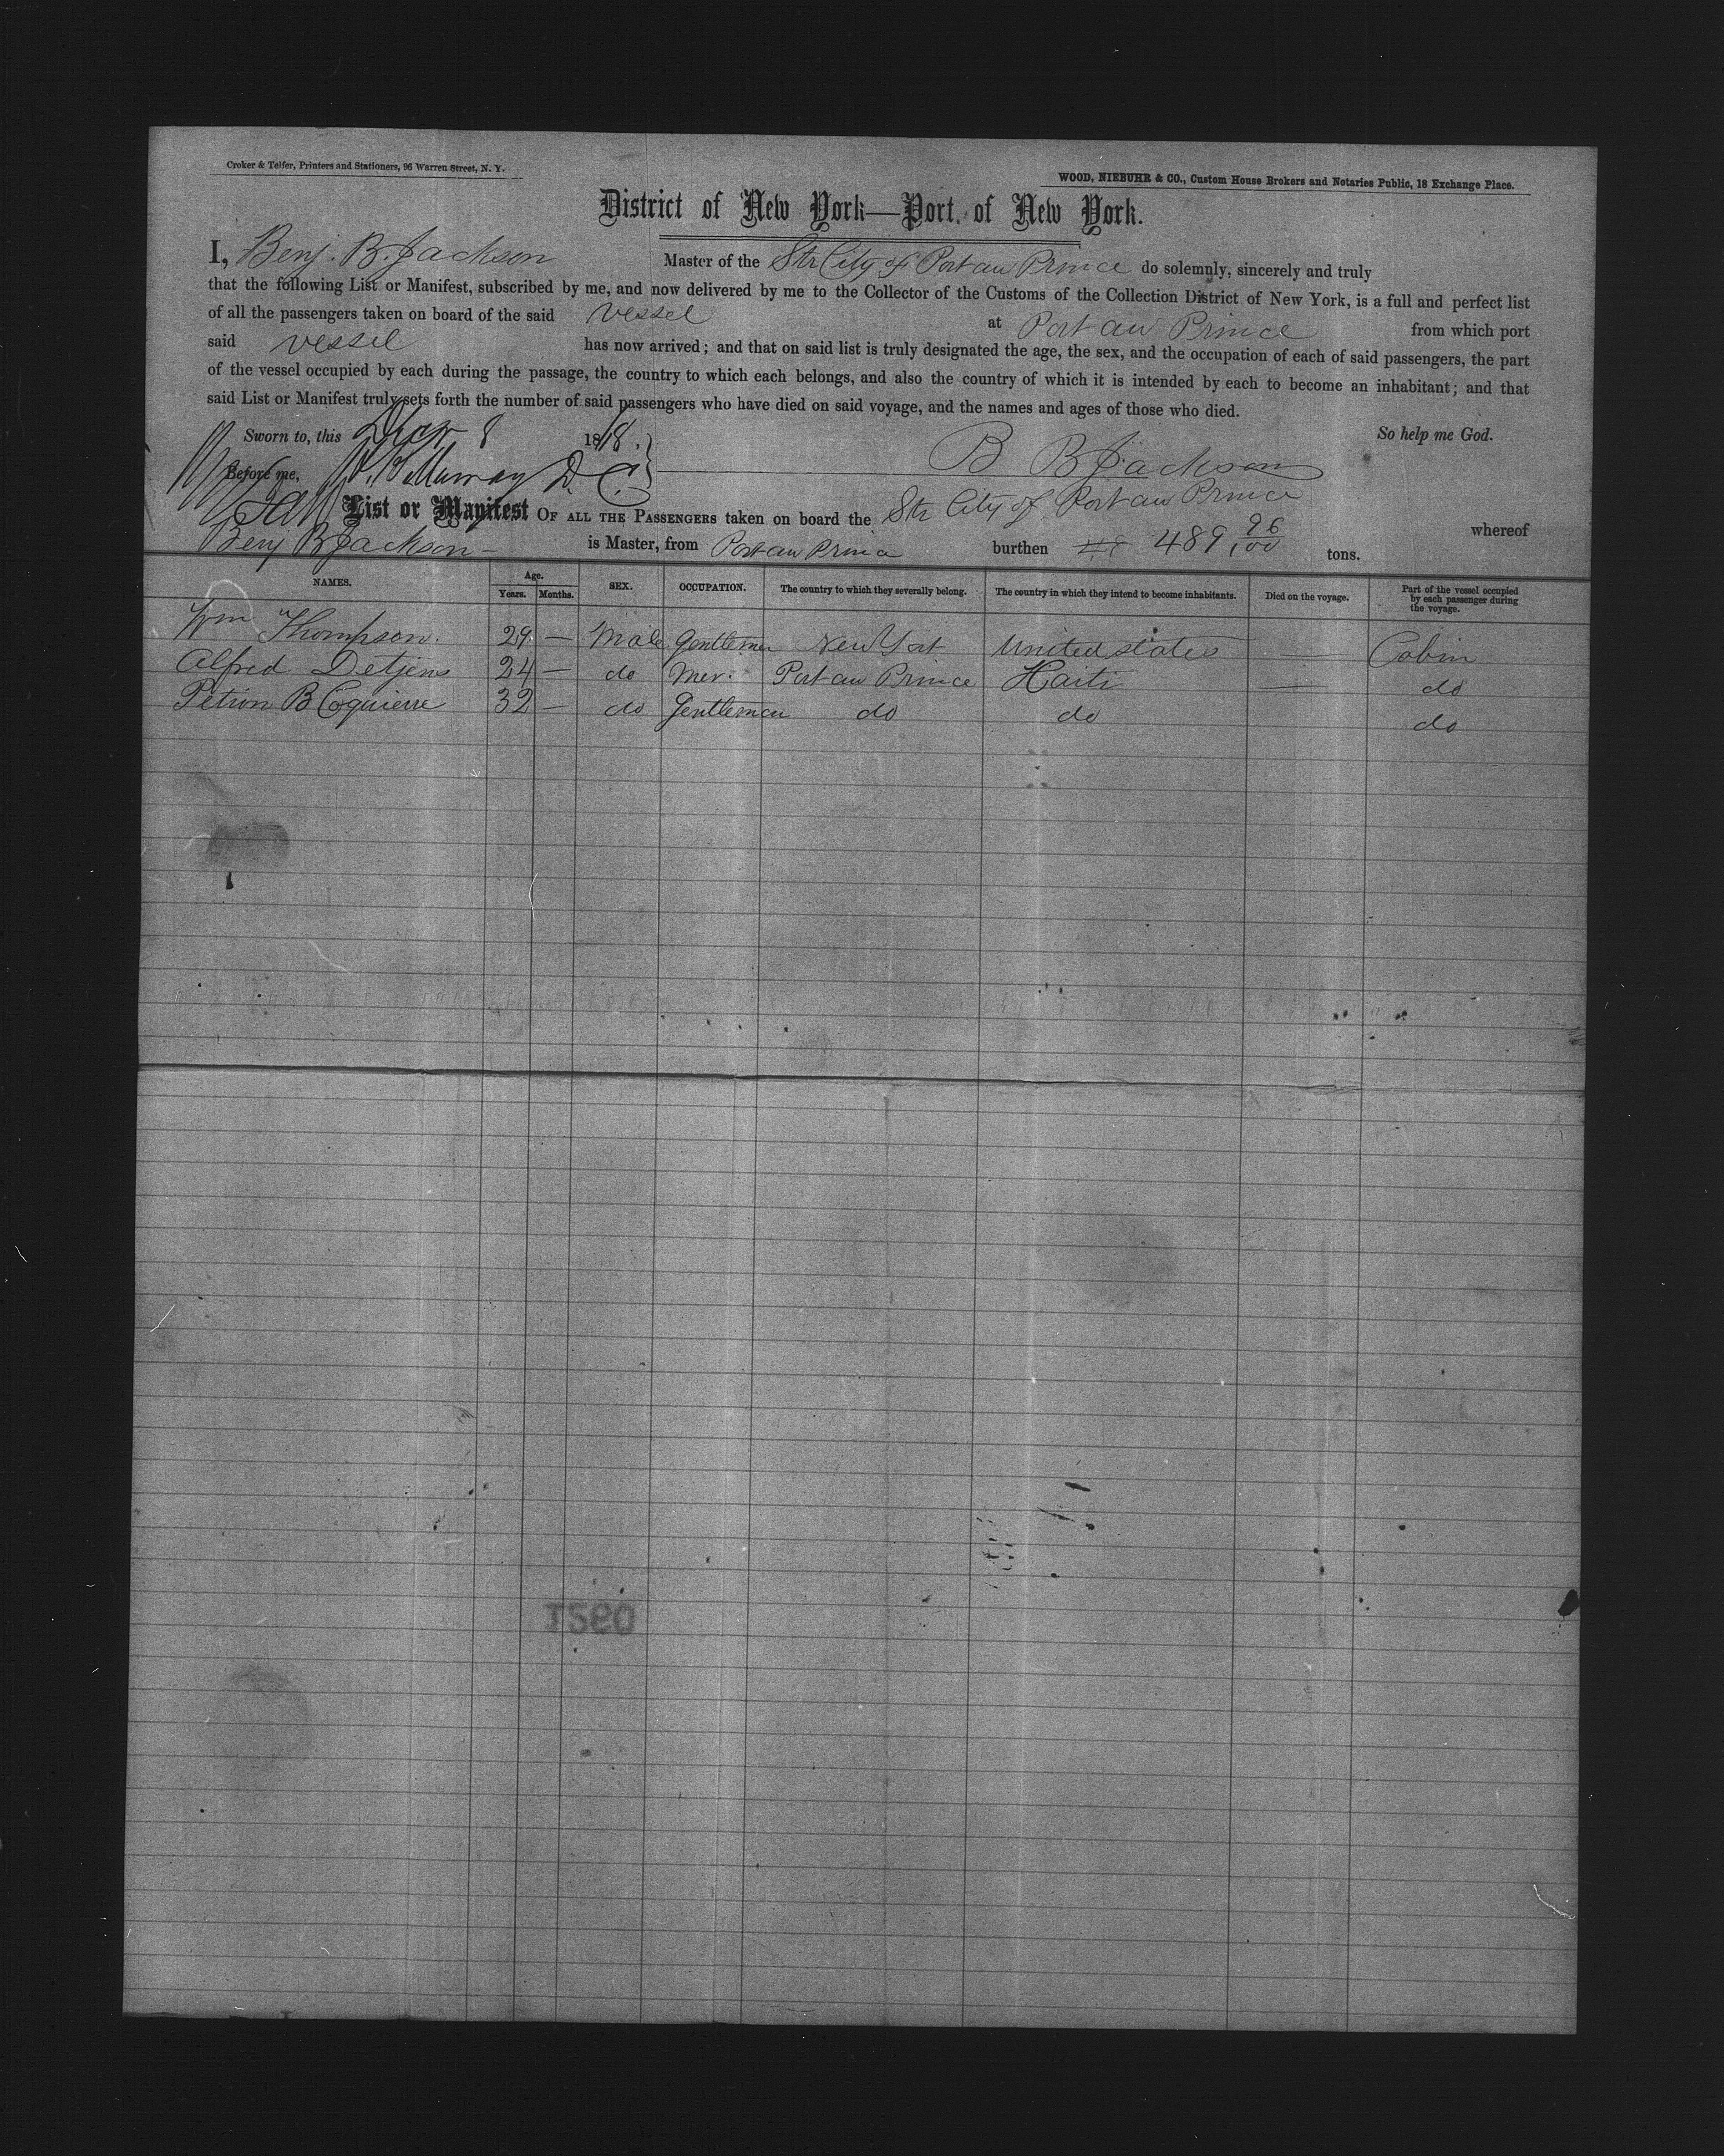 Croker & Telfer, Printers and Stationers, 96 Warren Street, N. Y.
WOOD, NIEBUHR & CO., Custom House Brokers and Notaries Public, 18 Exchange Place.
District of New York—Port of New York.
I, Benj. B. Jackson Master of the Str City of Port au Prince do solemnly, sincerely and truly
that the following List or Manifest, subscribed by me, and now delivered by me to the Collector of the Customs of the Collection District of New York, is a full and perfect list
of all the passengers taken on board of the said vessel at Port au Prince from which port
said vessel has now arrived; and that on said list is truly designated the age, the sex, and the occupation of each of said passengers, the part
of the vessel occupied by each during the passage, the country to which each belongs, and also the country of which it is intended by each to become an inhabitant; and that
said List or Manifest truly sets forth the number of said passengers who have died on said voyage, and the names and ages of those who died.
Sworn to, this 8 18 So help me God.
Before me, Murray D. C. B B Jackson
List or Manifest OF ALL THE PASSENGERS taken on board the Str City of Port au Prince whereof
Benj B Jackson is Master, from Port au Prince burthen 489 96/100 tons.
NAMES. Age. Years. Months. SEX. OCCUPATION. The country to which they severally belong. The country in which they intend to become inhabitants. Died on the voyage. Part of the vessel occupied by each passenger during the voyage.
Wm Thompson. 29 — Male Gentleman New York United states — Cabin
Alfred Detjens 24 — do Mer. Port au Prince Haiti — do
Petion B Coquierre 32 — do Gentleman do do do